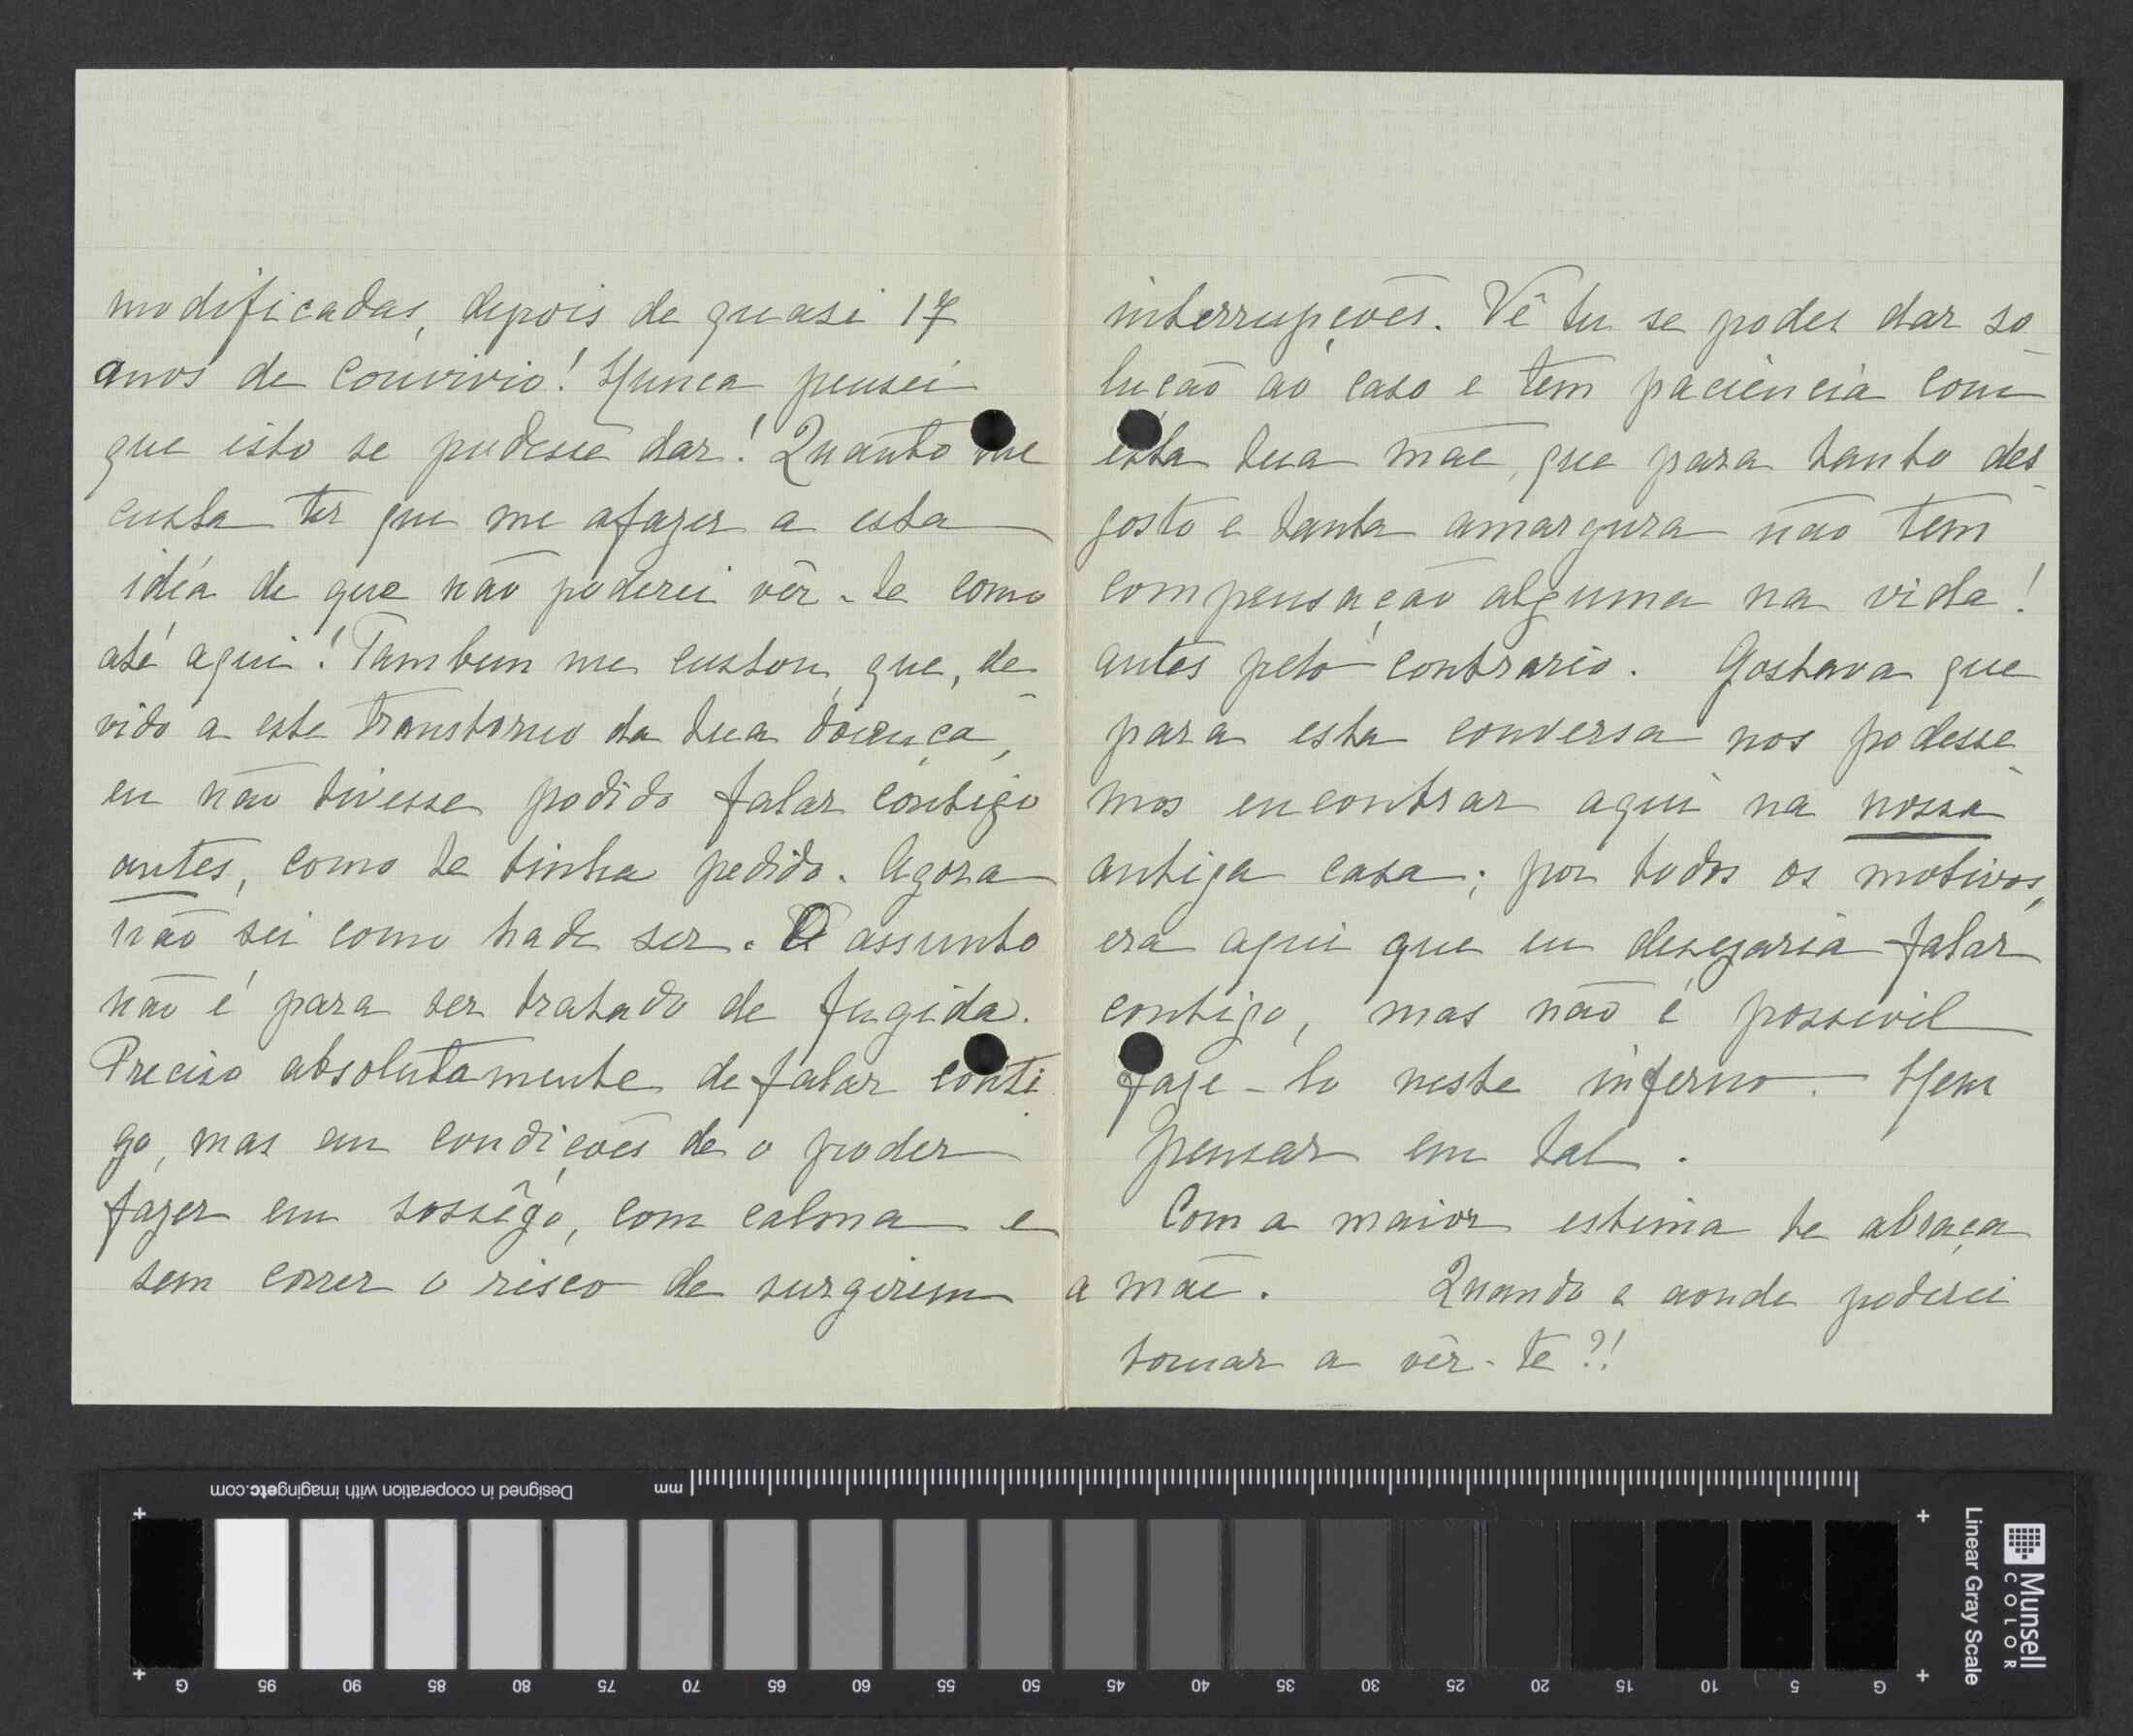 modificadas, depois de quasi 17
anos de convivio! Nunca pensei
que isto se pudesse dar! Quanto me
custa ter que me afazer a esta
idéa de que não poderei vêr-te como
até aqui! Tambem me custou, que, de-
vido a este transtorno da tua doença,
eu não tivesse podido falar contigo
antes, como te tinha pedido. Agora
não sei como hade ser. O assunto
não é para ser tratado de fugida.
Preciso absolutamente de falar conti-
go, mas em condições de o poder
fazer em sossêgo, com calma e
sem correr o risco de surgirem
interrupções. Vê tu se podes dar so-
lução ao caso e tem paciencia com
esta tua mãe, que para tanto des-
gosto e tanta amargura não tem
compensação alguma na vida!
antes pelo contrario. Gostava que
para esta conversa nos podesse-
mos encontrar aqui na nossa
antiga casa; por todos os motivos,
era aqui que eu desejaria falar
contigo, mas não é possivel
faze-lo neste inferno. Nem
pensar em tal.
Com a maior estima te abraça
a mãe. Quando e aonde poderei
tornar a vêr-te?!
Designed in cooperation with imagingetc.com
mm
G 95 90 85 80 75 70 65 60 55 50 45 40 35 30 25 20 15 10 5 G
Munsell
COLOR
Linear Gray Scale